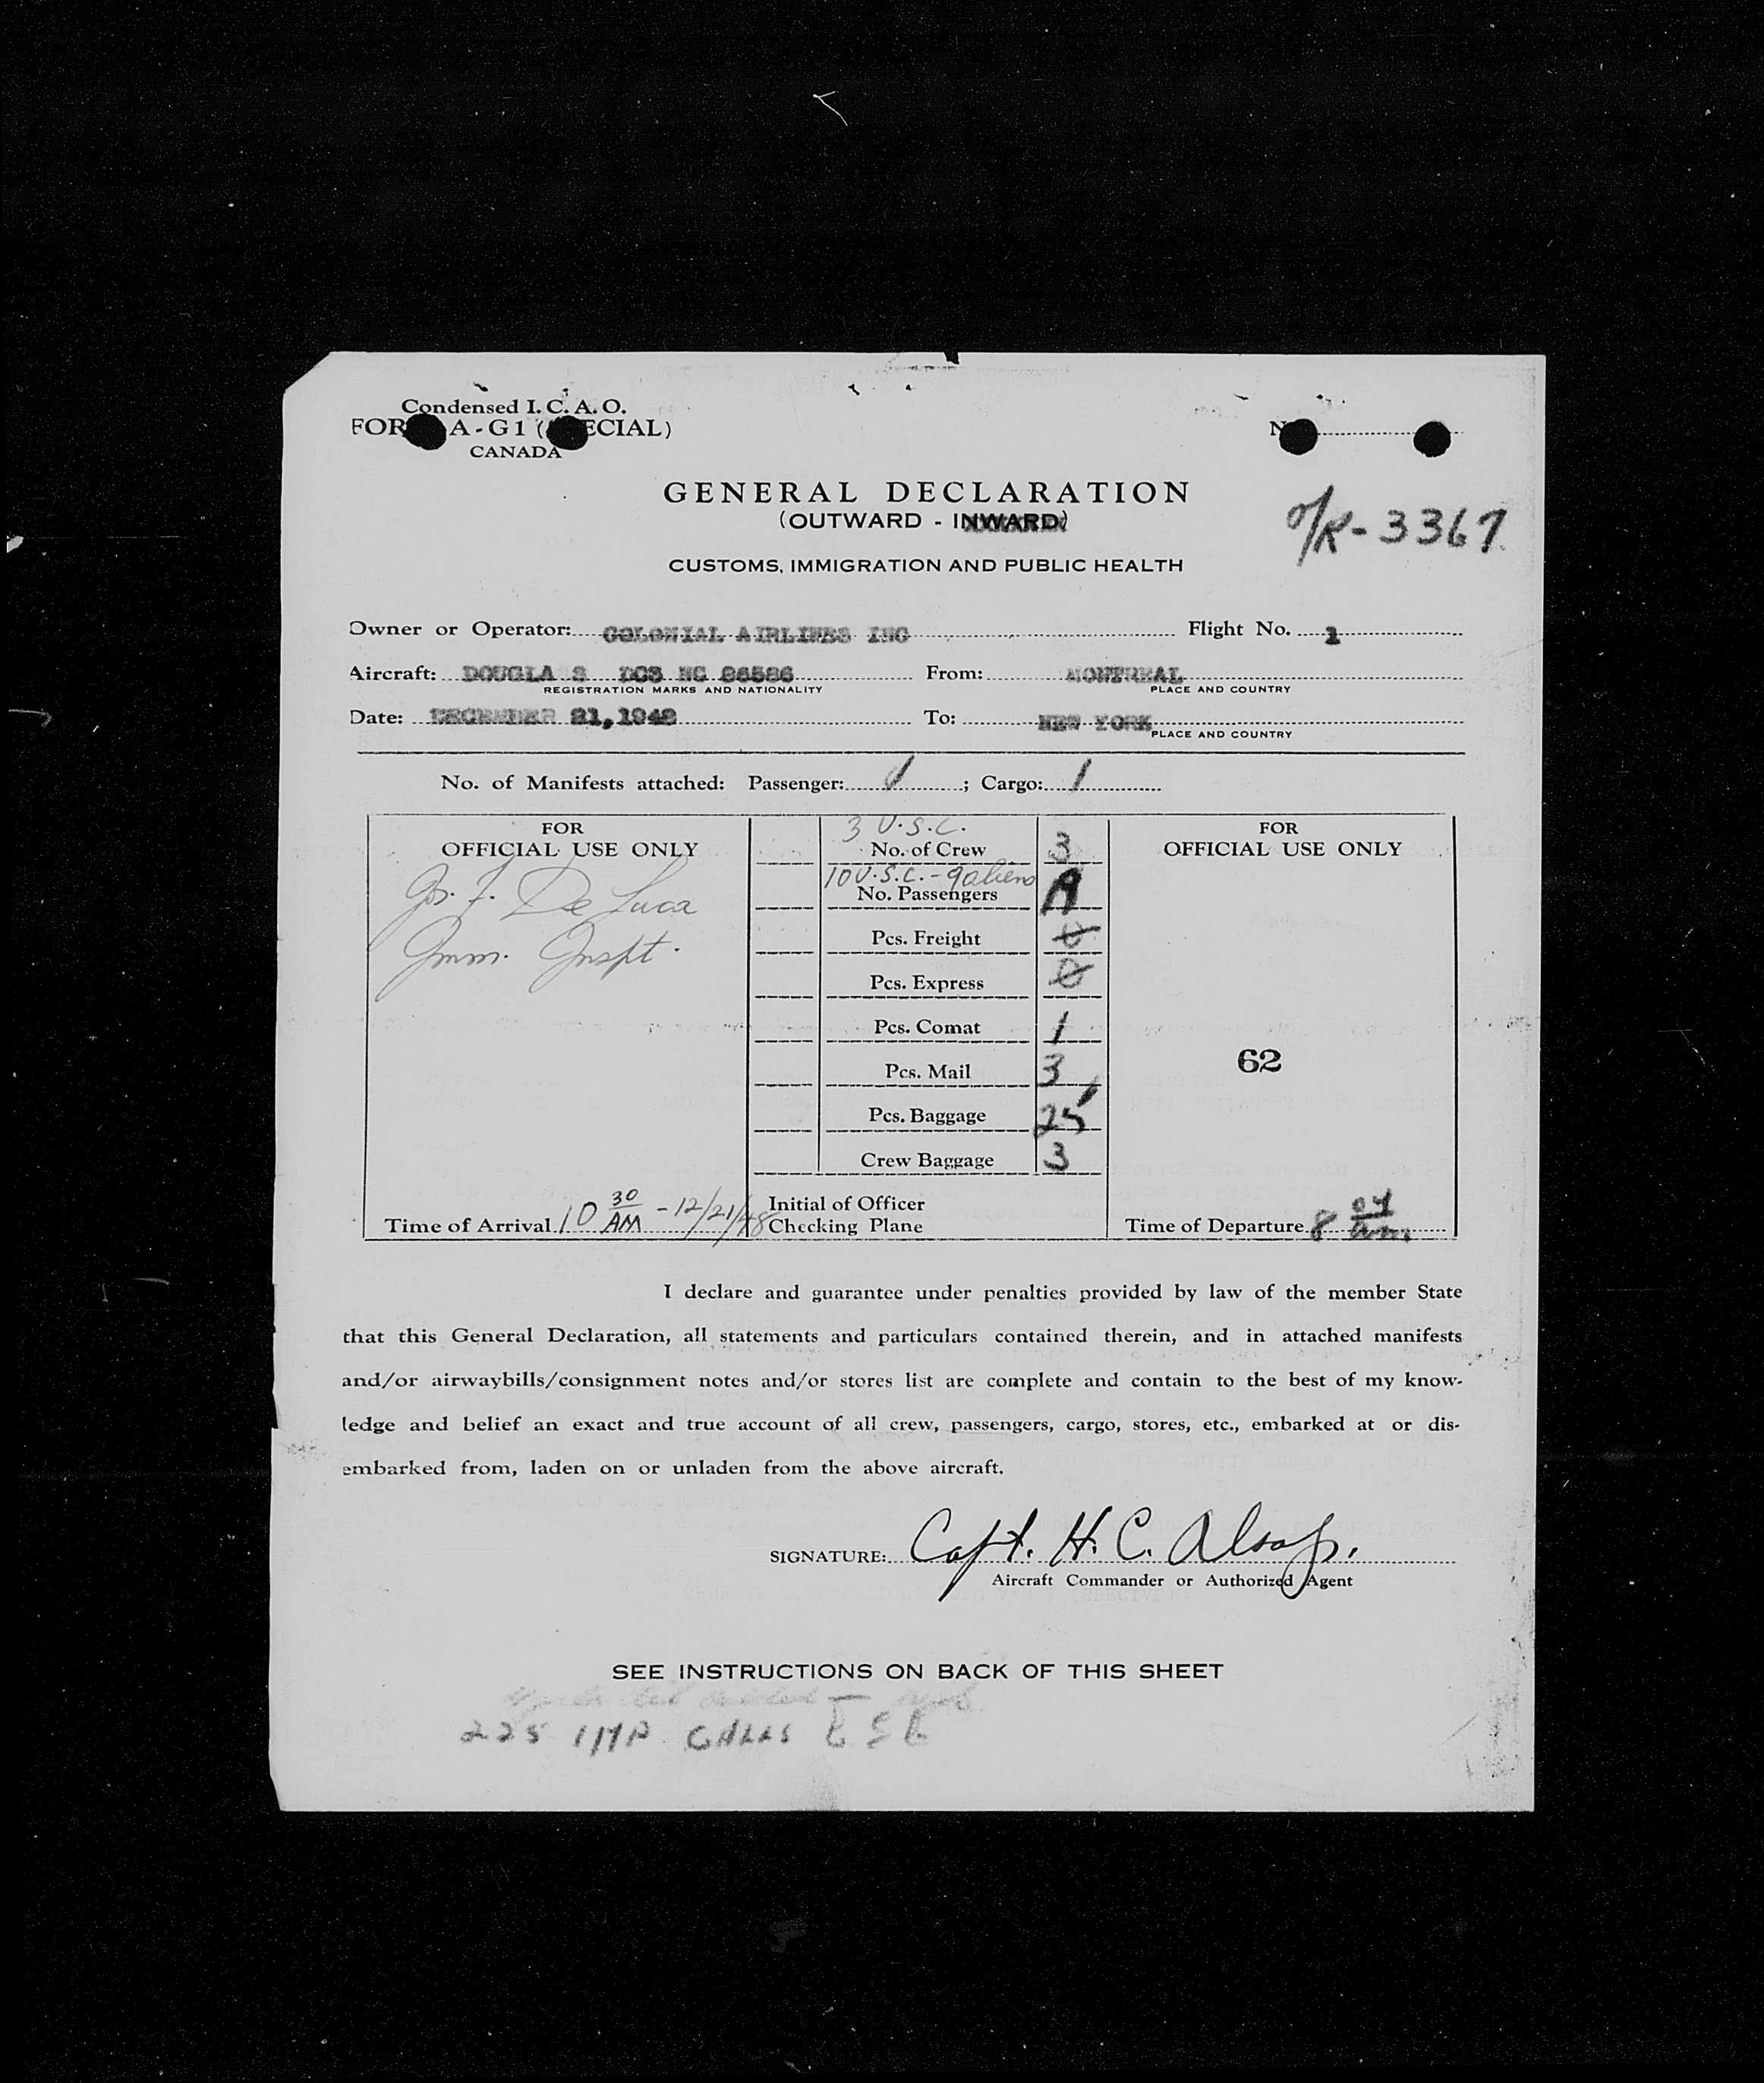 Condensed I. C. A. O.
FOR A - G 1 ( ECIAL)
CANADA
N
GENERAL DECLARATION
(OUTWARD - INWARD)
O/R - 3367
CUSTOMS, IMMIGRATION AND PUBLIC HEALTH
Owner or Operator: COLONIAL AIRLINES INC Flight No. 1
Aircraft: DOUGLA S DC3 NC 86586 From: MONTREAL
REGISTRATION MARKS AND NATIONALITY PLACE AND COUNTRY
Date: DECEMBER 21,1948 To: NEW YORK
PLACE AND COUNTRY
No. of Manifests attached: Passenger: 1 ; Cargo: 1
FOR
OFFICIAL USE ONLY
Jos. F. De Luca
Imm. Inspt.
Time of Arrival 10 30 AM - 12/21/48
3 U.S.C.
No. of Crew 3
10 U.S.C. - 9 aliens
No. Passengers
Pcs. Freight 0
Pcs. Express 0
Pcs. Comat 1
Pcs. Mail 3
Pcs. Baggage 25
Crew Baggage 3
Initial of Officer
Checking Plane
FOR
OFFICIAL USE ONLY
62
Time of Departure 8 am.
I declare and guarantee under penalties provided by law of the member State
that this General Declaration, all statements and particulars contained therein, and in attached manifests
and/or airwaybills/consignment notes and/or stores list are complete and contain to the best of my know-
ledge and belief an exact and true account of all crew, passengers, cargo, stores, etc., embarked at or dis-
embarked from, laden on or unladen from the above aircraft.
SIGNATURE: Capt. H. C. Alsop.
Aircraft Commander or Authorized Agent
SEE INSTRUCTIONS ON BACK OF THIS SHEET
225 IMP GALLS